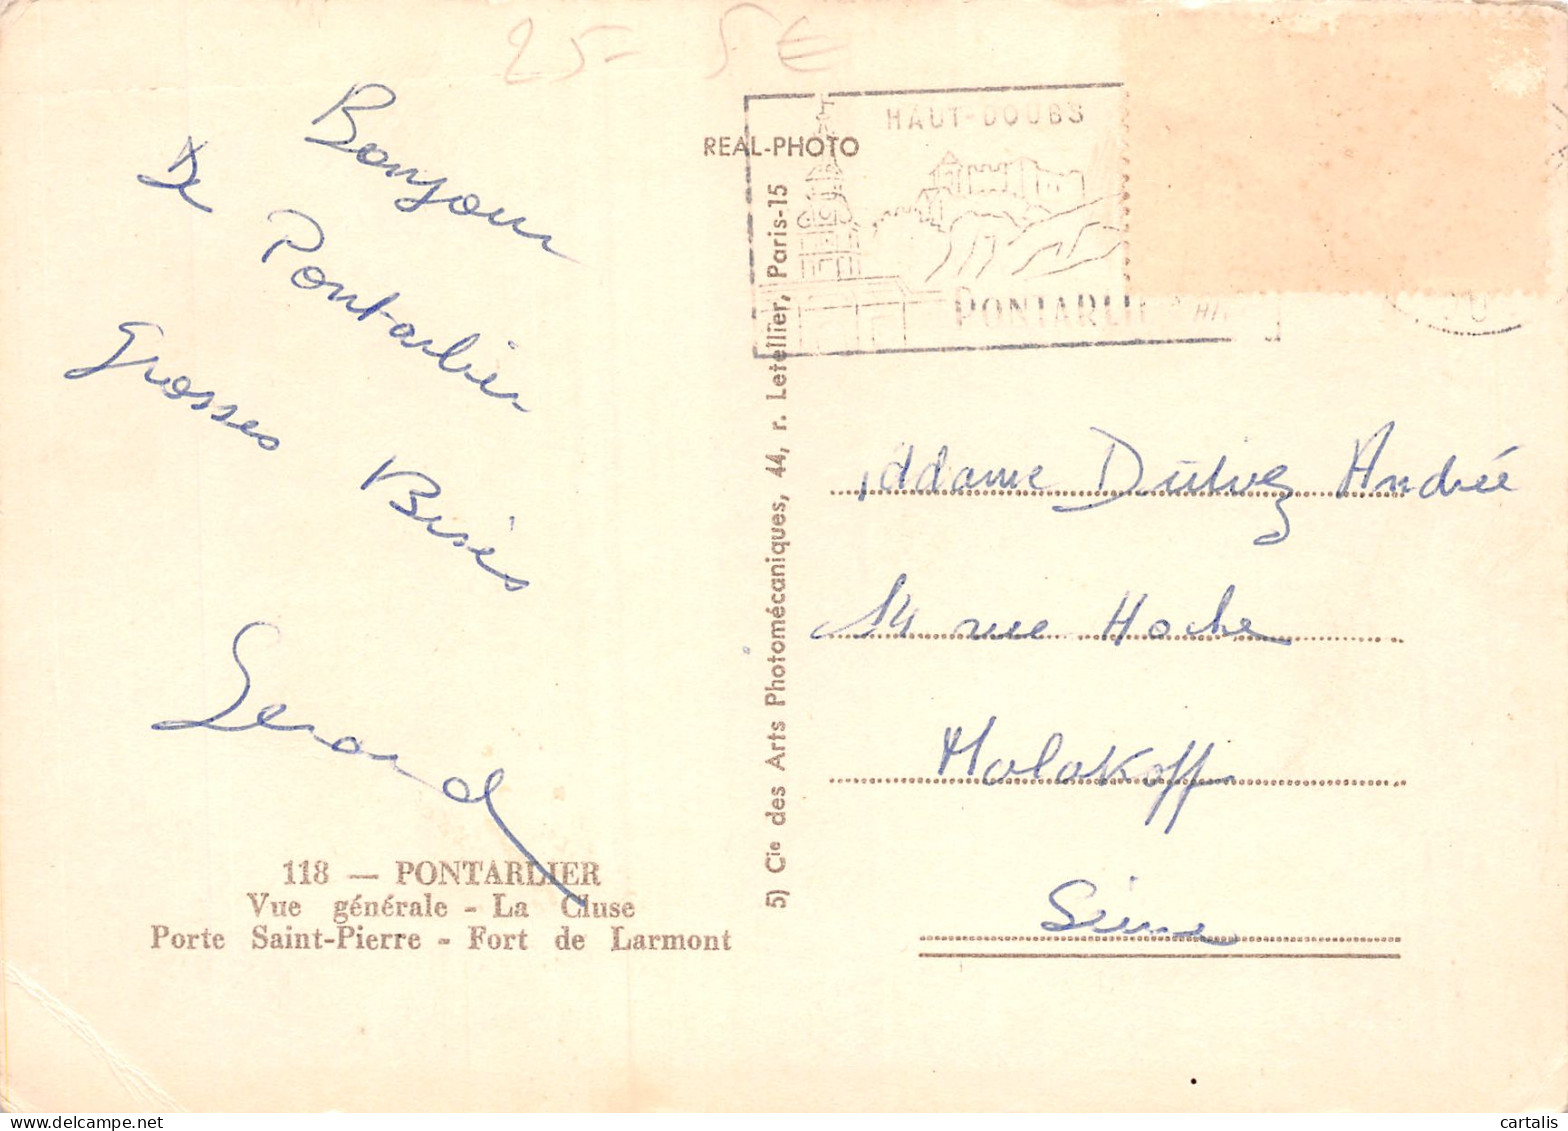 25- 5€
HAUT-DOUBS
REAL-PHOTO
PONTARLI
Bonjour
De Pontarlier
Grosses Bises
Gerard
5) Cie des Arts Photomécaniques, 44, r. Letellier, Paris-15
Madame Andrée
14 rue Hoche
Malakoff
Seine
118 — PONTARLIER
Vue générale - La Cluse
Porte Saint-Pierre - Fort de Larmont
cartalis